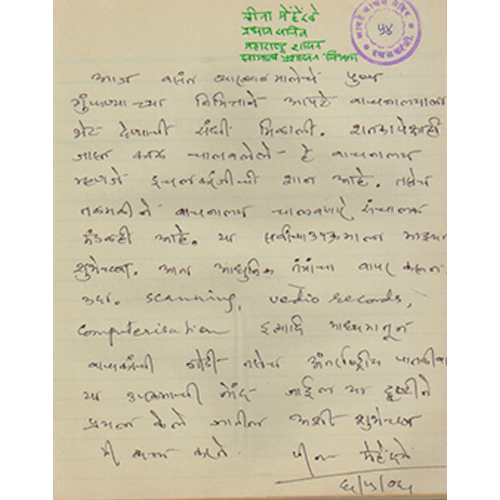 लीना मेहेंदळे
प्रधान सचिव
महाराष्ट्र शासन
सामान्य प्रशासन विभाग
आपटे वाचन मंदिर
५४
इचलकरंजी
आज वसंत व्याख्यानमालेचे पुष्प
गुंफण्याच्या निमित्ताने आपटे वाचनालयाला
भेट देण्याची संधी मिळाली. शतकापेक्षाही
जास्त काळ चाललेले हे वाचनालय
म्हणजे इचलकरंजीची शान आहे. तसेच
तळमळीने वाचनालय चालवणारे संचालक
मंडळही आहे. या सर्वांच्या उपक्रमाला माझ्या
शुभेच्छा. आता आधुनिक तंत्रांचा वापर करून
उदा. scanning, vedio records,
computerisation इत्यादि माध्यमातून
वाचकांची गोडी तसेच आंतर्राष्ट्रीय पातळीवर
या उपक्रमाची नोंद जाईल या दृष्टीने
प्रयत्न केले जातील अशी शुभेच्छा
मी व्यक्त करते. लीना मेहेंदळे
६/५/०६